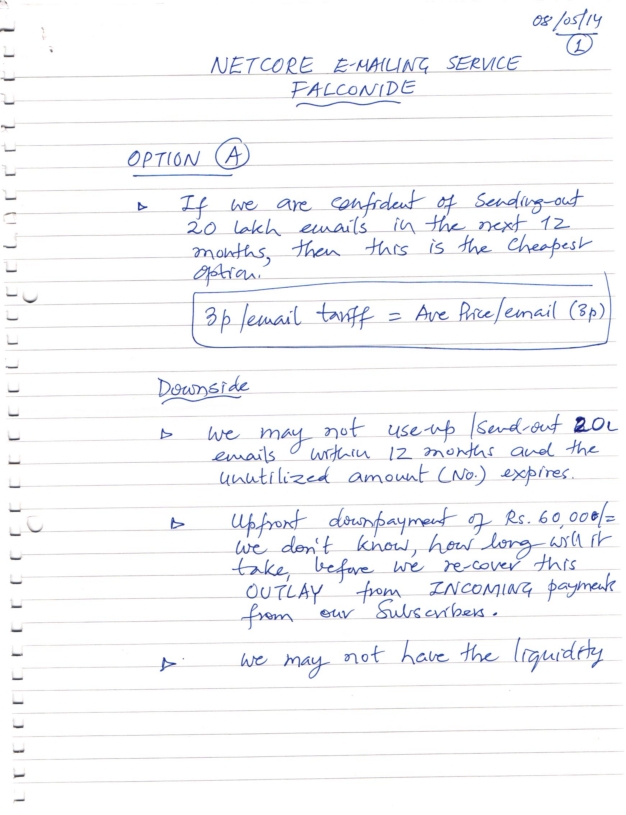 08/05/14
1
NETCORE E-MAILING SERVICE
FALCONIDE
OPTION A
▷ If we are confident of Sending-out
20 lakh emails in the next 12
months, then this is the cheapest
option.
3p/email tariff = Ave Price/email (3p)
Downside
▷ we may not use-up/send-out 20L
emails within 12 months and the
unutilized amount (No.) expires.
▷ Upfront downpayment of Rs. 60,000/=
we don't know, how long will it
take, before we re-cover this
OUTLAY from INCOMING payments
from our Subscribers.
▷ we may not have the liquidity